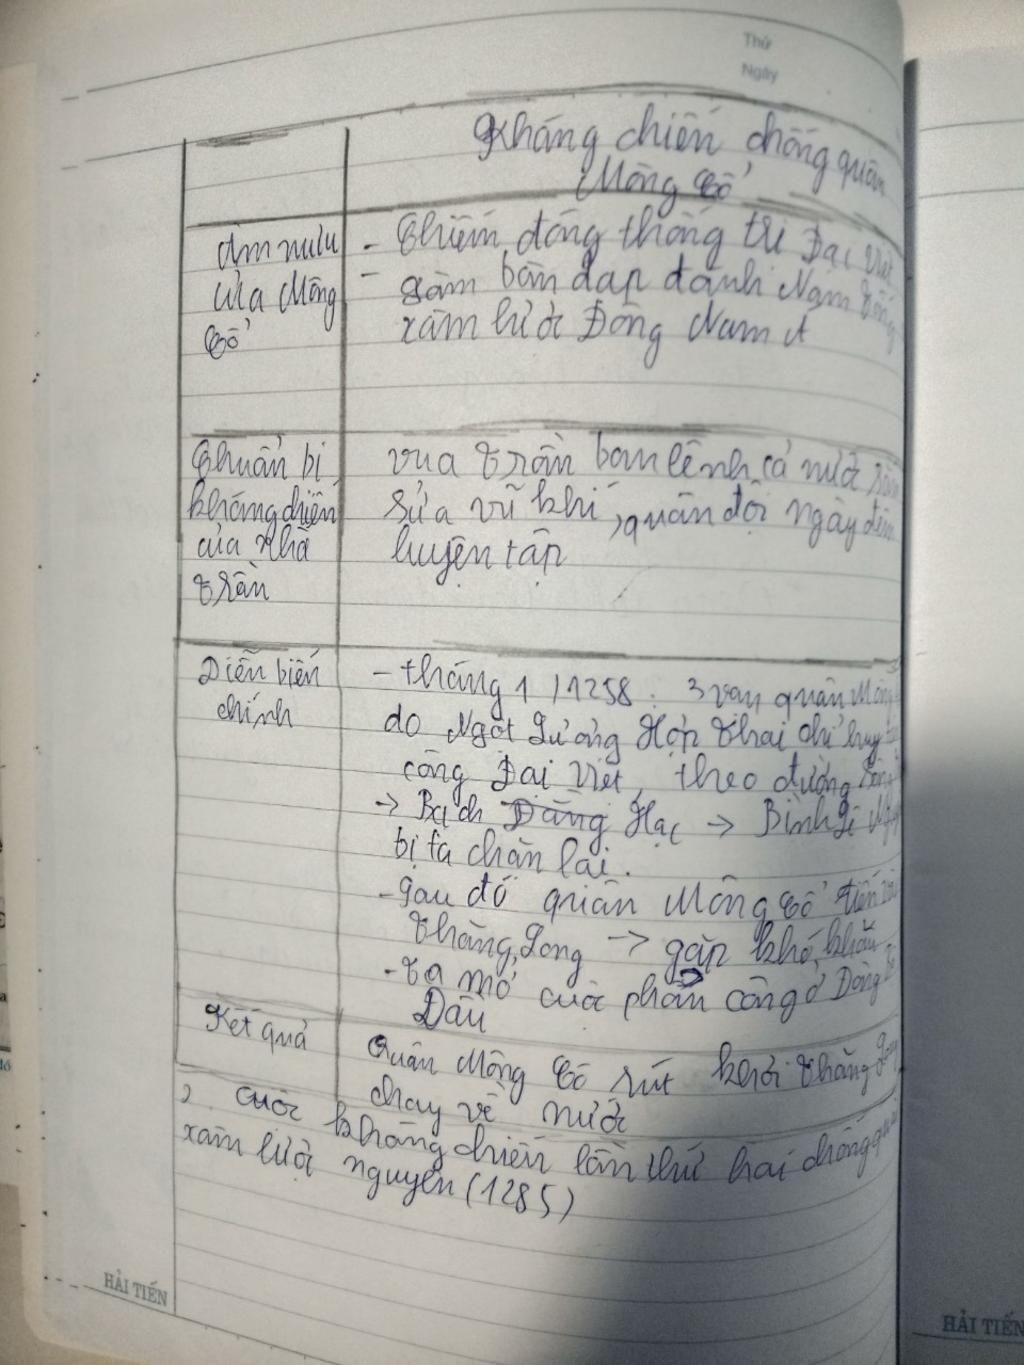 Thứ
Ngày
Kháng chiến chống quân
Mông Cổ
Âm mưu
của Mông
Cổ
- Chiếm đóng thống trị Đại Việt
- Làm bàn đạp đánh Nam Tống
xâm lược Đông Nam Á
Chuẩn bị
kháng chiến
của nhà
Trần
vua Trần ban lệnh cả nước
sửa vũ khí, quân đội ngày đêm
luyện tập
Diễn biến
chính
- tháng 1/1258: 3 vạn quân Mông
do Ngột Lương Hợp Thai chỉ huy
công Đại Việt, theo đường Sông
-> Bạch Đằng Hạc -> Bình Lệ
bị ta chặn lại.
- Sau đó quân Mông Cổ tiến
Thăng Long -> gặp khó khăn
- Ta mở cuộc phản công ở Đông
Đầu
Kết quả
Quân Mông Cổ rút khỏi Thăng Long
chạy về nước
cuộc kháng chiến lần thứ hai chống quân
xâm lược nguyên (1285)
HẢI TIẾN
HẢI TIẾN